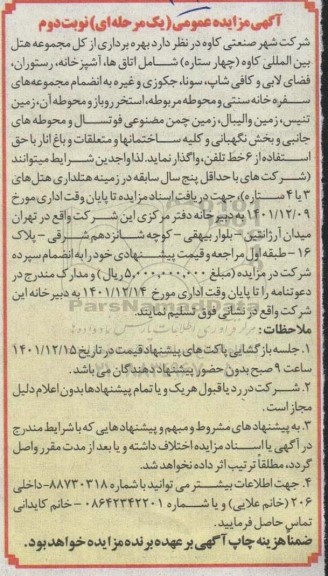 آگهی مزایده عمومی (یک مرحله ای) نوبت دوم
شرکت شهر صنعتی کاوه در نظر دارد بهره برداری از کل مجموعه هتل
بین المللی کاوه (چهار ستاره) شامل اتاق ها، آشپزخانه، رستوران،
فضای لابی و کافی شاپ، سونا، جکوزی و غیره به انضمام مجموعه های
سفره خانه سنتی و محوطه مربوطه، استخر روباز و محوطه آن، زمین
تنیس، زمین والیبال، زمین چمن مصنوعی فوتسال و محوطه های
جانبی و بخش نگهبانی و کلیه ساختمانها و متعلقات و باغ انار با حق
استفاده از ۶ خط تلفن، واگذار نماید. لذا واجدین شرایط میتوانند
(شرکت های با حداقل پنج سال سابقه در زمینه هتلداری هتل های
۳ یا ۴ ستاره)، جهت دریافت اسناد مزایده تا پایان وقت اداری مورخ
۱۴۰۱/۱۲/۰۹ به دبیرخانه دفتر مرکزی این شرکت واقع در تهران
میدان آرژانتین - بلوار بیهقی - کوچه شانزدهم شرقی - پلاک
۱۶ - طبقه اول مراجعه و قیمت پیشنهادی خود را به انضمام سپرده
شرکت در مزایده (مبلغ ۵,۰۰۰,۰۰۰,۰۰۰ ریال) و مدارک مندرج در
دعوتنامه را تا پایان وقت اداری مورخ ۱۴۰۱/۱۲/۱۴ به دبیرخانه این
شرکت واقع در نشانی فوق تسلیم نمایند.
ملاحظات:
۱. جلسه بازگشایی پاکت های پیشنهاد قیمت در تاریخ ۱۴۰۱/۱۲/۱۵
ساعت ۹ صبح بدون حضور پیشنهاد دهندگان می باشد.
۲. شرکت در رد یا قبول هر یک و یا تمام پیشنهادها بدون اعلام دلیل
مجاز است.
۳. به پیشنهادهای مشروط و مبهم و پیشنهادهایی که با شرایط مندرج
در آگهی یا اسناد مزایده اختلاف داشته و یا بعد از مدت مقرر واصل
گردد، مطلقاً ترتیب اثر داده نخواهد شد.
۴. جهت اطلاعات بیشتر می توانید با شماره ۸۸۷۳۰۳۱۸-داخلی
۲۰۶ (خانم علایی) و یا شماره ۰۸۶۴۲۳۴۲۲۰۱ - خانم کایدانی
تماس حاصل فرمایید.
ضمناً هزینه چاپ آگهی بر عهده برنده مزایده خواهد بود.